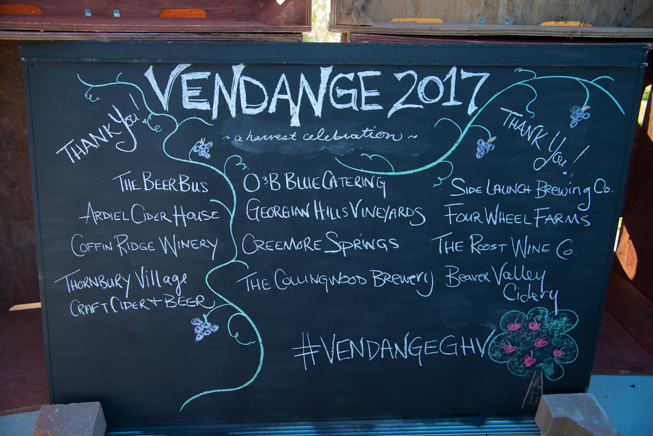 VENDANGE 2017
~ a harvest celebration ~
THANK YOU!
THANK YOU!
THE BEER BUS
ARDIEL CIDER HOUSE
COFFIN RIDGE WINERY
THORNBURY VILLAGE
CRAFT CIDER + BEER
O3B BLUE CATERING
GEORGIAN HILLS VINEYARDS
CREEMORE SPRINGS
THE COLLINGWOOD BREWERY
SIDE LAUNCH BREWING CO.
FOUR WHEEL FARMS
THE ROOST WINE CO.
BEAVER VALLEY
CIDERY
#VENDANGEGHV